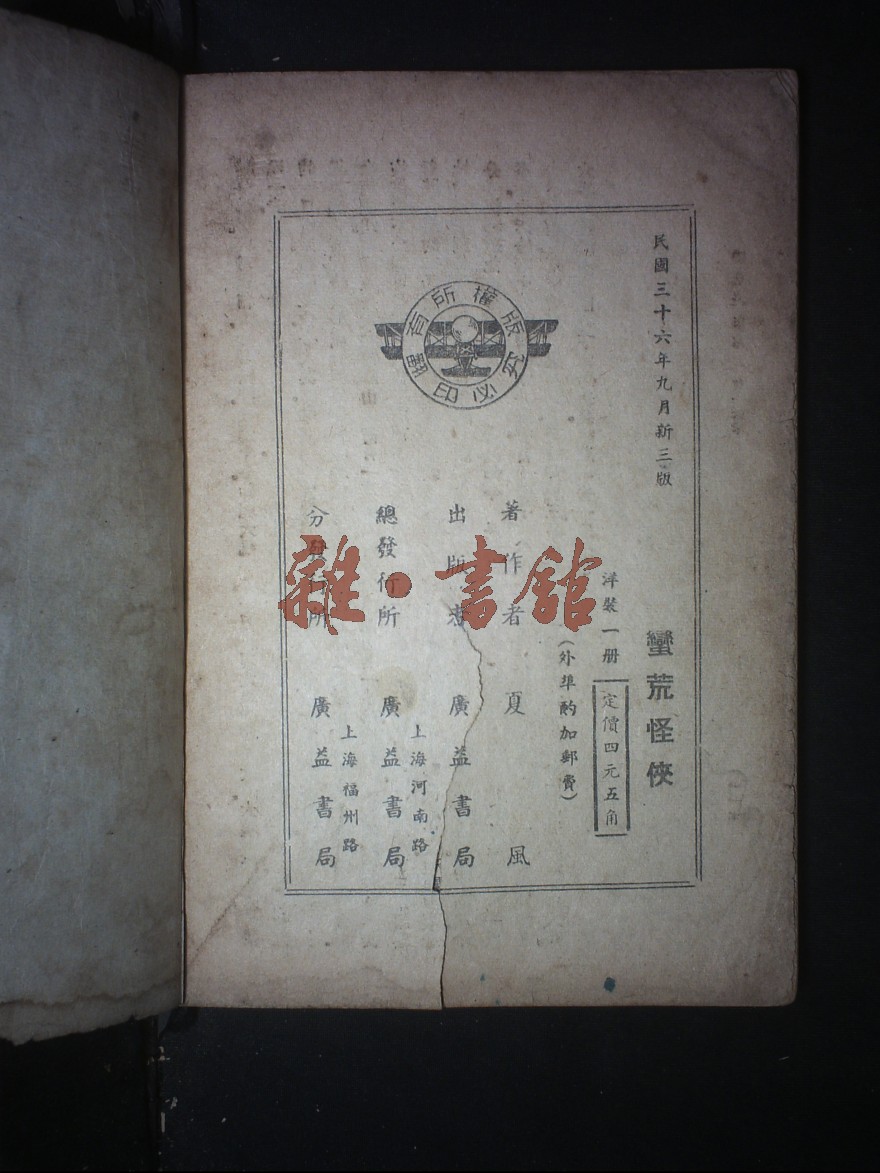 民國三十六年九月新三版
蠻荒怪俠
洋裝一册
定價四元五角
（外埠酌加郵費）
著作者 夏風
出版者 廣益書局
上海河南路
總發行所 廣益書局
上海福州路
分發行所 廣益書局
版權所有
翻印必究
雜·書館